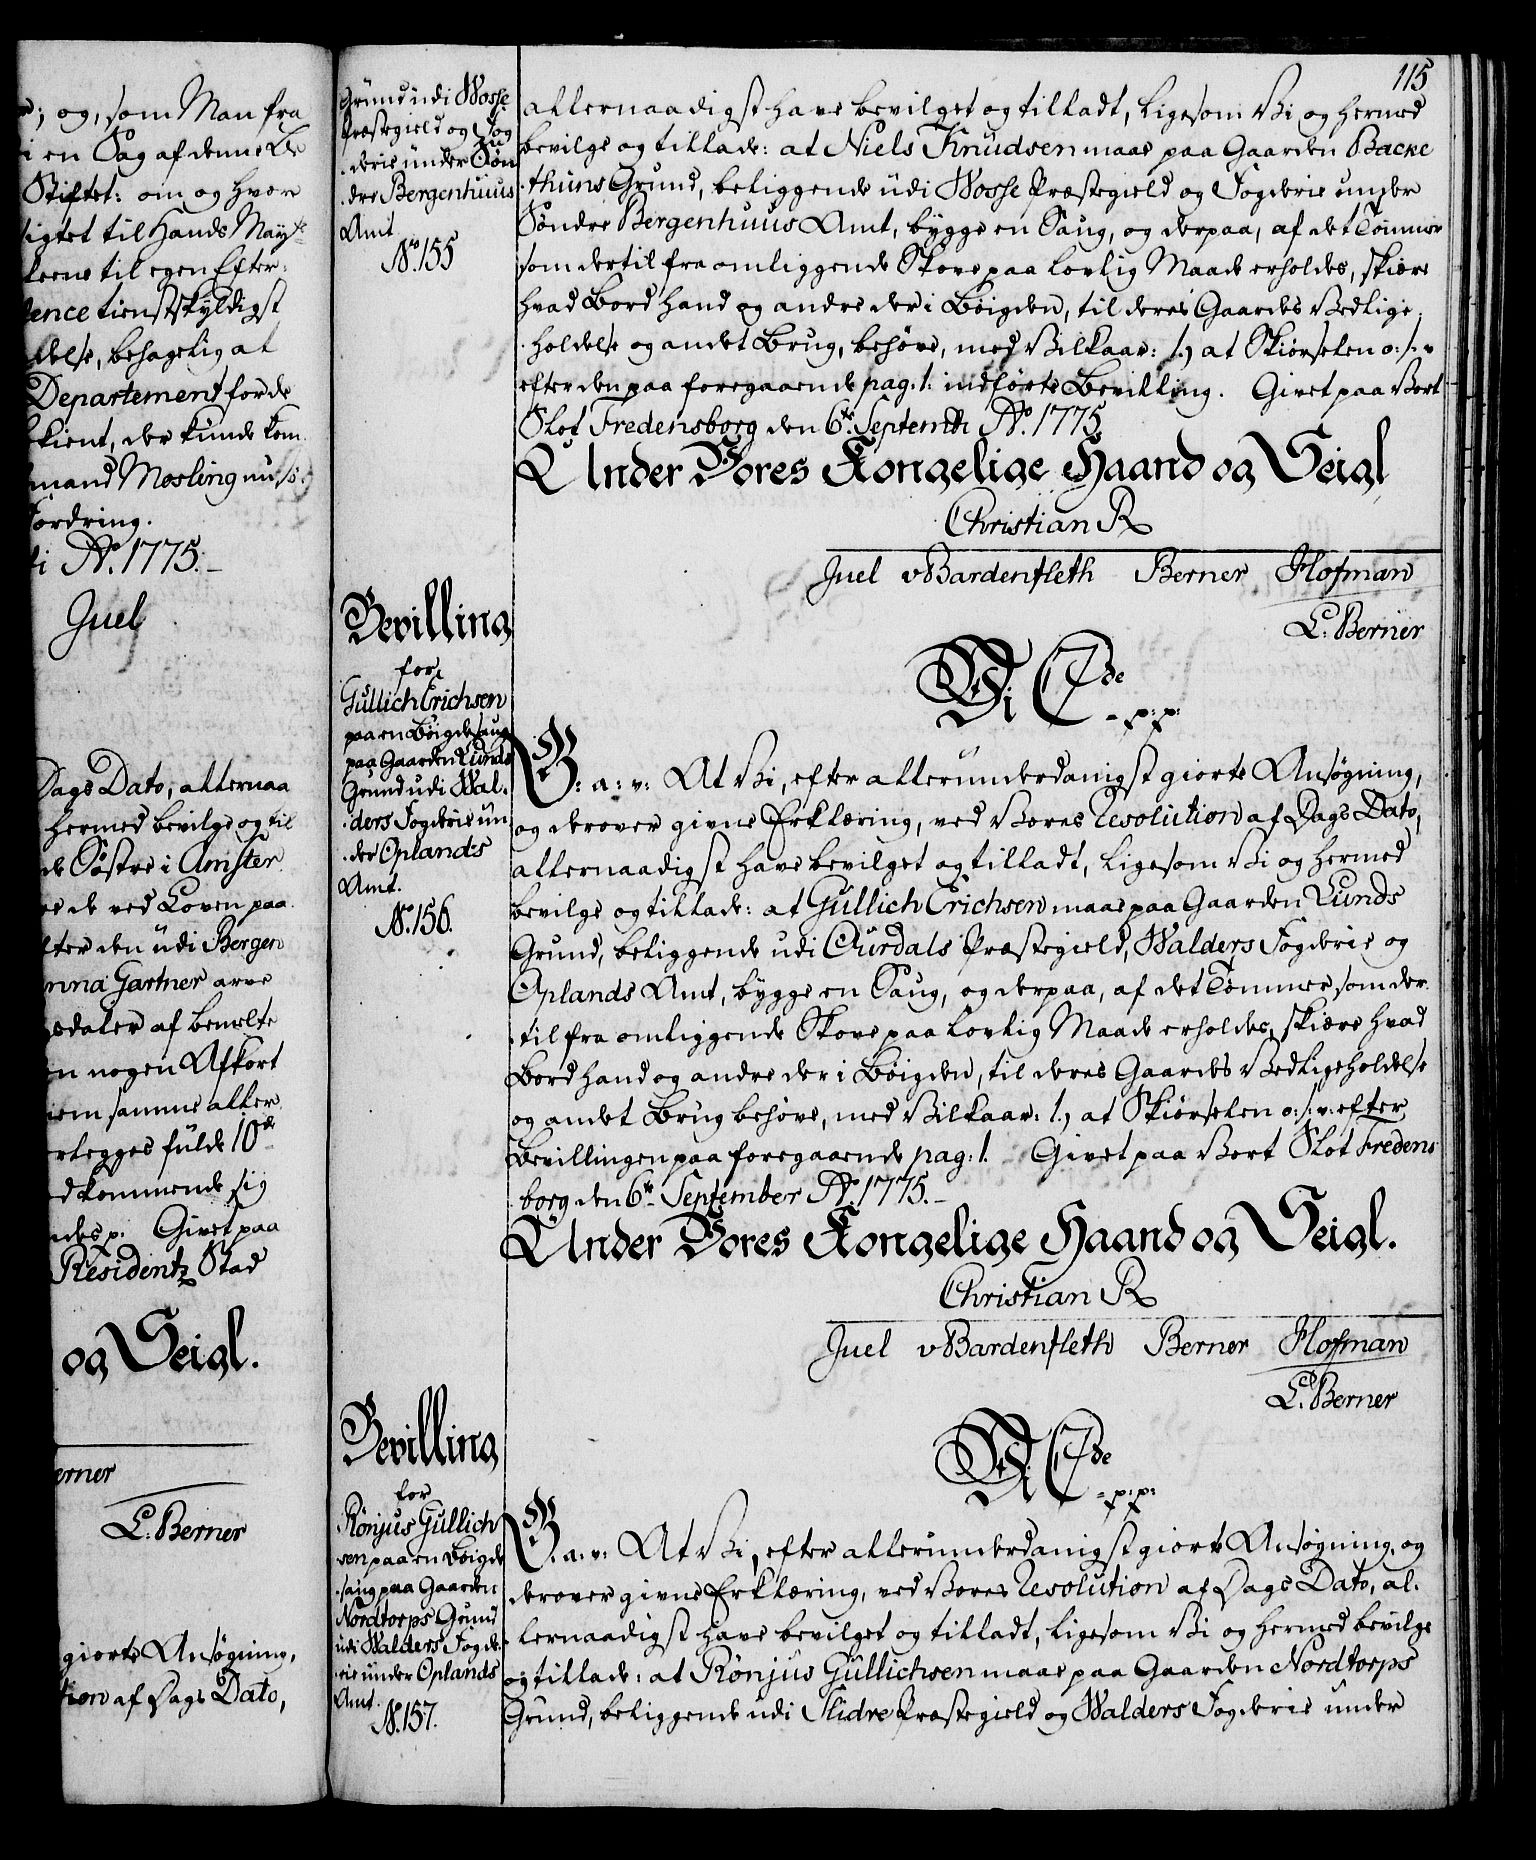 ; og, som Man fra
i en Sag af denne Be
Stiftet: om og hvor
sigtet til Hands Mayts
kerne til egen Efter:
dence tienstskyldigst
delse, behagelig at
Departement for de
bekient, der kunde kom
mand Mosling nu so
fordring.
di Ao. 1775.
Juel
Dags Dato, allernaa
hermed bevilge og til
de Söstre i Amster
de ved Loven paa
efter den udi Bergen
nna Gartner arve
gsdaler af bemelte
en nogen Afkort
iem samme aller
erlegges fulde 10de
edkommende sig
ndes p. Givet paa
Residentz Stad
og Seigl.
erner
C. Berner
giorte Ansøgning,
tion af Dags Dato,
Grund udi Wosse
Præstegield og Fog
derie under Søn
dre Bergenhuus
Amt
No. 155
Bevilling
for
Gullich Erichsen
paa en Bøigdesaug
paa Gaarden Lunds
Grund udi Wal-
ders Fogderie un
der Oplands
Amt.
No. 156.
Bevilling
for
Rønjus Gullich
sen paa en Bøigde
saug paa Gaarden
Nordtorps Grund
udi Walders Fogde-
rie under Oplands
Amt.
No. 157.
115
allernaadigst have bevilget og tilladt, ligesom Vi og hermed
bevilge og tillade: at Niels Knudsen maae paa Gaarden Backe
thuns Grund, beliggende udi Wosse Præstegield og Fogderie under
Søndre Bergenhuus Amt, bygge en Saug, og derpaa, af det Tømmer
som dertil fra omliggende Skove paa lovlig Maade erholdes, skiære
hvad Bord hand og andre der i Bøigden, til deres Gaardes Vedlige-
holdelse og andet Brug, behøve, med Vilkaar: 1.) at Skiørselen o: s: v
efter den paa foregaaende pag: 1. indførte Bevilling. Givet paa Vort
Slot Fredensborg den 6te Septembr Ao. 1775.
Under Vores Kongelige Haand og Seigl
Christian R
Juel vBardenfleth Berner Hofman
C. Berner
Vi C7de
- p: p:
G: a: v: At Vi, efter allerunderdanigst giorte Ansøgning,
og derover givne Erklæring, ved Vores Resolution af Dags Dato,
allernaadigst have bevilget og tilladt, ligesom Vi og hermed
bevilge og tillade: at Gullich Erichsen maae paa Gaarden Lunds
Grund, beliggende udi Ourdals Præstegield, Walders Fogderie og
Oplands Amt, bygge en Saug, og derpaa, af det Tømmer som der-
til fra omliggende Skove paa lovlig Maade erholdes, skiære hvad
Bord hand og andre der i Bøigden, til deres Gaardes Vedligeholdelse
og andet Brug behøve, med Vilkaar: 1.) at Skiørselen o: s: v: efter
Bevillingen paa foregaaende pag: 1. Givet paa Vort Slot Fredens
borg den 6te September Ao. 1775.
Under Vores Kongelige Haand og Seigl.
Christian R
Juel vBardenfleth Berner Hofman
C. Berner
Vi C7de
- p: p:
G: a: v: At Vi, efter allerunderdanigst giorte Ansøgning, og
derover givne Erklæring, ved Vores Resolution af Dags Dato, al-
lernaadigst have bevilget og tilladt, ligesom Vi og hermed bevilge
og tillade: at Rønjus Gullichsen maae paa Gaarden Nordtorps
Grund, beliggende udi Slidre Præstegield og Walders Fogderie under